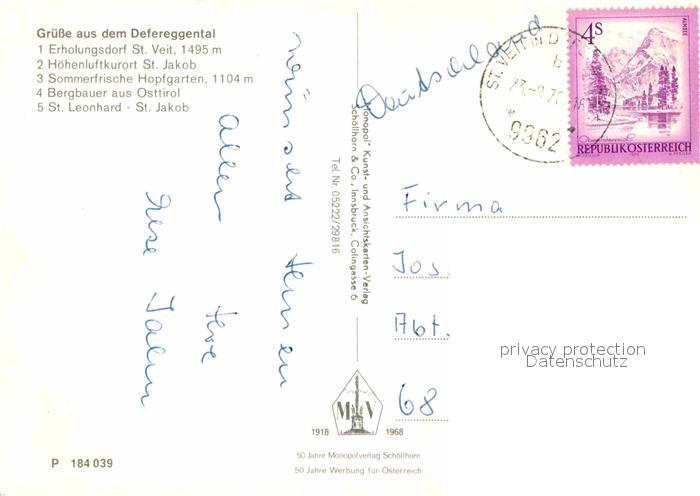 Grüße aus dem Defereggental
1 Erholungsdorf St. Veit, 1495 m
2 Höhenluftkurort St. Jakob
3 Sommerfrische Hopfgarten, 1104 m
4 Bergbauer aus Osttirol
5 St. Leonhard - St. Jakob
wünscht Ihnen
allen Ihre
Deutschland
Monopol" Kunst- und Ansichtskarten-Verlag
Schöllhorn & Co., Innsbruck, Colingasse 6
Tel. Nr. 05222/29816
ST. VEIT IN D
9962
4 S
ALMSEE
REPUBLIK ÖSTERREICH
Firma
Jos.
Abt.
68
privacy protection
Datenschutz
M V
1918 1968
50 Jahre Monopolverlag Schöllhorn
50 Jahre Werbung für Österreich
P 184 039